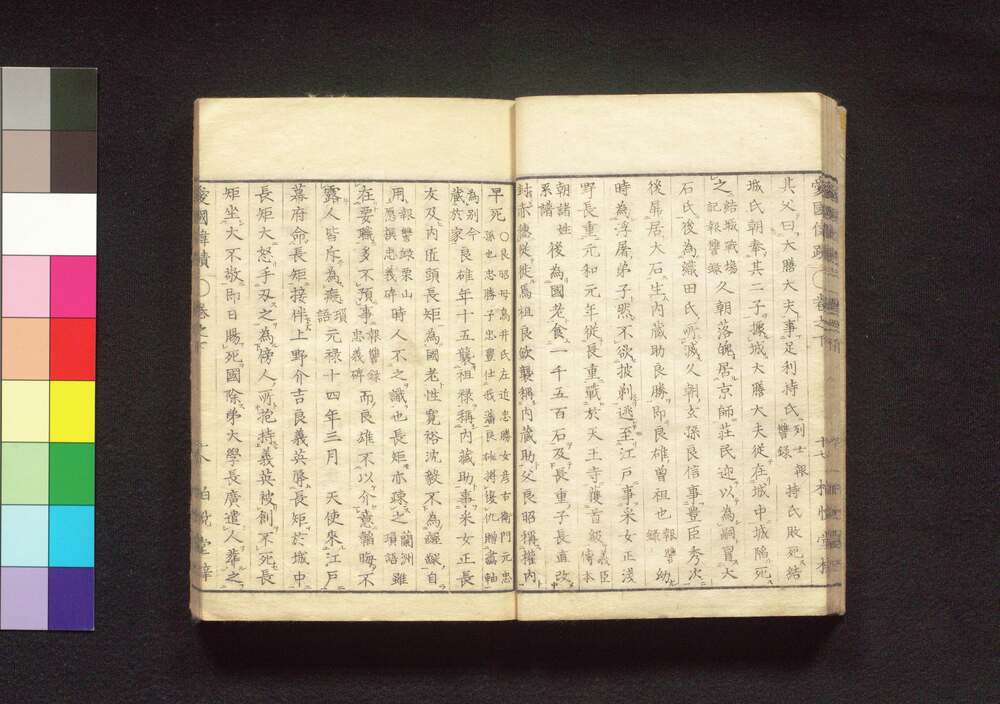 愛國偉蹟 〇 卷之下 十七
其父曰大膳大夫事足利持氏列士報讐錄持氏敗死結
城氏朝奉其二子據城大膳大夫從在城中城陷死
之結城戰場記報讐錄久朝落魄居京師莊氏迎以為嗣冒大
石氏後為織田氏所滅久朝玄孫良信事豐臣秀次
後屏居大石生內藏助良勝即良雄曾祖也報讐錄幼
時為浮屠弟子然不欲披剃逃至江戶事采女正淺
野長重元和元年從長重戰於天王寺獲首級義臣傳本
朝諸姓系譜後為國老食一千五百石及長重子長直改
封赤穗從徙焉祖良欽襲稱內藏助父良昭稱權內
早死〇良昭母鳥井氏左近忠勝女彥右衛門元忠
孫也忠勝子忠豐仕我藩良雄將復仇贈畫軸
為別今藏於家良雄年十五襲祖祿稱內藏助事采女正長
友及內匠頭長矩為國老性寬裕沈毅不為
用報讐錄栗山愿撰忠義碑時人不之識也長矩亦疎之蘭洲瑣語雖
在要職多不預事報讐錄忠義碑而良雄不以介意韜晦不
露人皆斥為癡瑣語元祿十四年三月 天使來江戶
幕府命長矩接伴上野介吉良義英辱長矩於城中
長矩大怒手刃之為傍人所抱持義英被創不死長
矩坐大不敬即日賜死國除弟大學長廣遣人葬之
愛國偉蹟 〇 卷之下